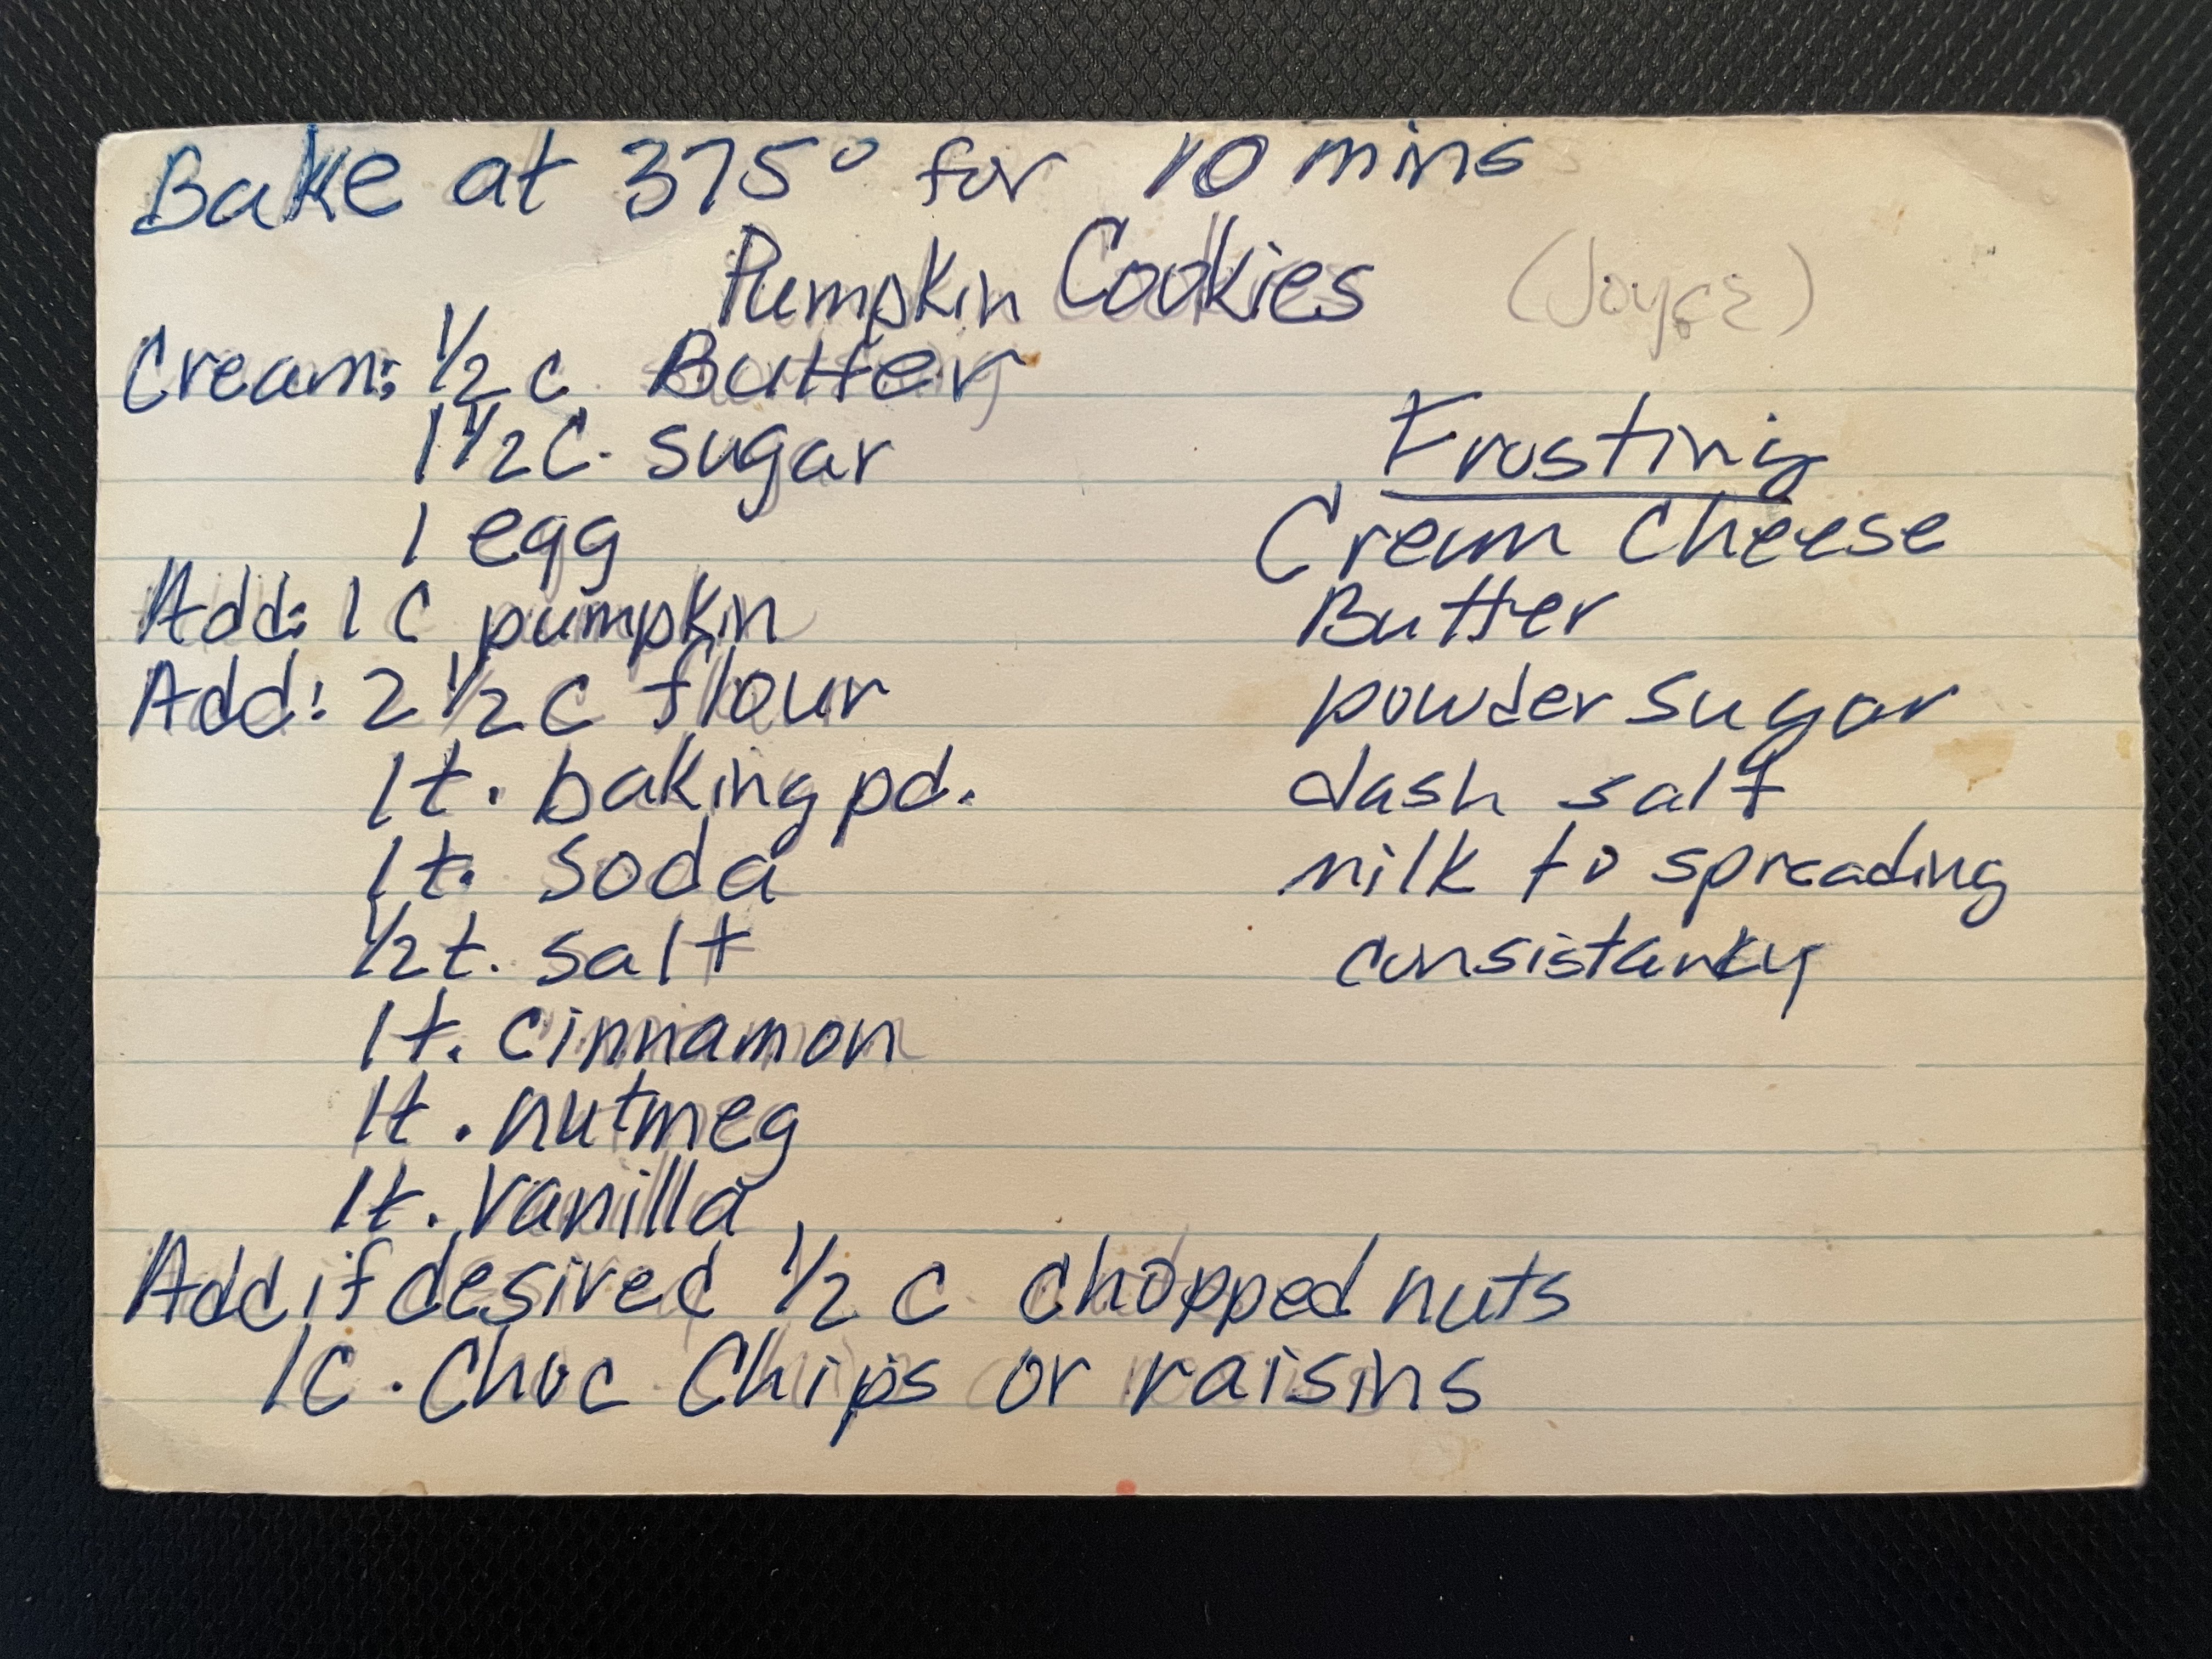 Bake at 375° for 10 mins
Pumpkin Cookies (Joyce)
Cream: 1/2 c. Butter
1 1/2 C. sugar
1 egg
Add: 1 C pumpkin
Add: 2 1/2 C flour
1t. baking pd.
1t. soda
1/2 t. salt
1t. cinnamon
1t. nutmeg
1t. vanilla
Add if desired 1/2 c chopped nuts
1C. Choc Chips or raisins
Frosting
Cream Cheese
Butter
powder sugar
dash salt
milk to spreading
consistancy